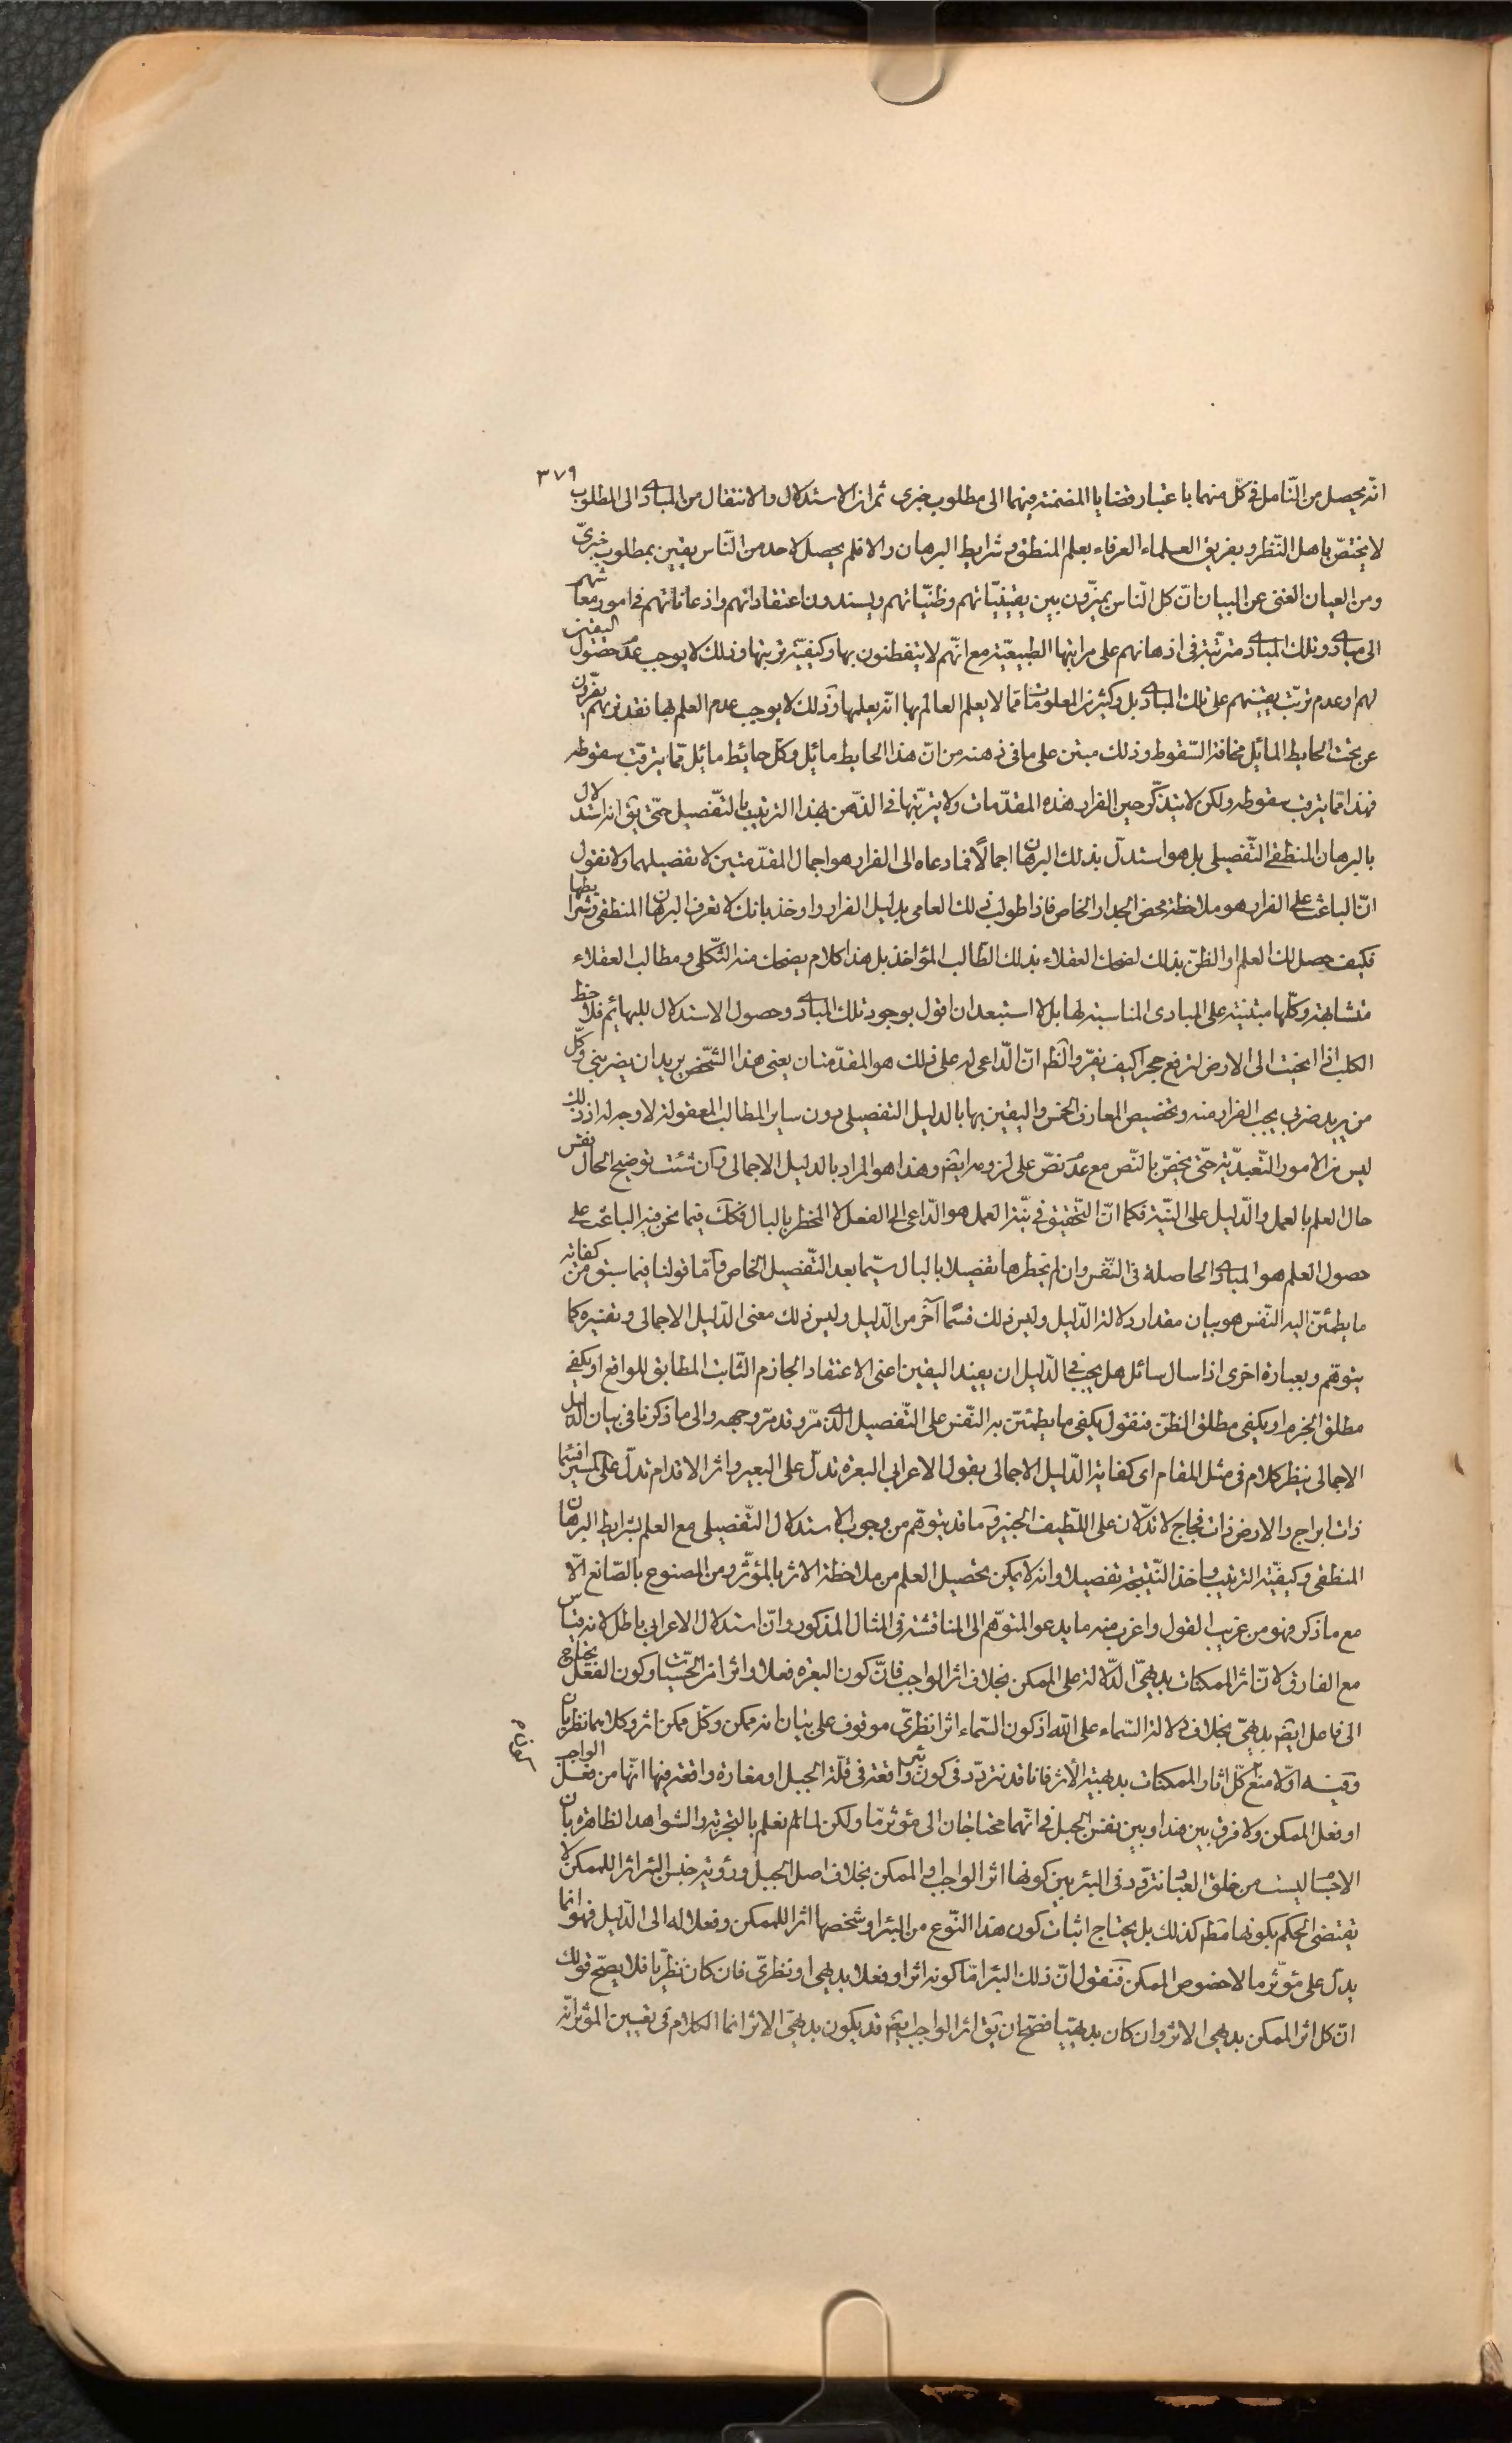 ٣٧٩
انّه يحصل من التّامل فى كلّ منهما باعتبار قضايا المضمنة فيهما الى مطلوب خبرى ثم ان الاستدلال والانتقال من المبادى الى المطلوب
لا يختصّ باهل النّظر و بفريق العلماء العرفاء بعلم المنطق و شرايط البرهان والا فلم يحصل لاحد من النّاس يقين بمطلوب خبرىّ
ومن العيان الغنى عن البيان انّ كل النّاس يميّزون بين يقينيّاتهم وظنيّاتهم ويسندون اعتقاداتهم واذعاناتهم فى امور معاشهم
الى مبادى وتلك المبادى مترتّبة فى اذهانهم على مراتبها الطبيعيّة مع انّهم لا يتفطنون بها وكيفيّة ترتيبها وذلك لا يوجب عدم حصول اليقين
لهم او عدم ترتّب يقينهم على تلك المبادى بل وكثير من المعلومات ممّا لا يعلم العالم بها انّه يعلمها وذلك لا يوجب عدم العلم بها فقد تريهم يفرّون
عن تحت الحايط المائل مخافة السّقوط وذلك مبتن على ما فى ذهنه من انّ هذا الحايط مائل وكلّ حايط مائل ممّا يترقّب سقوطه
فهذا ممّا يترقب سقوطه ولكن لا يتذكّر حين الفرار هذه المقدّمات ولا يرتّبها فى الذّهن بهذا الترتيب بالتّفصيل حتّى يق انه استدلال
بالبرهان المنطقى التّفصيلى بل هو استدلّ بذلك البرهان اجمالاً فما دعاه الى الفرار هو اجمال المقدّمتين لا تفصيلهما ولا نقول
انّ الباعث على الفرار هو ملاحظة محض الجدار الخاص فاذا طولب ذلك العامى بدليل الفرار واوخذ بانك لا تعرف البرهان المنطقى وشرايطها
فكيف حصل لك العلم او الظنّ بذلك لضحك العقلاء بذلك الطّالب المؤاخذ بل هذا كلام يضحك منه الثّكلى و مطالب العقلاء
متشابهة وكلّها مبتنية على المبادى المناسبة لها بل لا استبعد ان اقول بوجود تلك المبادى وحصول الاستدلال للبهائم فلاحظ
الكلب اذا انحنيت الى الارض لترفع حجرا كيف يفرّ والظ انّ الدّاعى له على ذلك هو المقدّمتان يعنى هذا الشّخص يريد ان يضربنى وكلّ
من يريد ضربى يجب الفرار منه وتخصيص المعارف الخمس واليقين بها بالدليل التفصيلى دون ساير المطالب المعقولة لا وجه له اذ ذلك
ليس من الامور التّعبديّة حتّى يخصّ بالنّص مع عدم نصّ على لزومه ايضم وهذا هو المراد بالدليل الاجمالى وان شئت توضيح الحال نفس
حال العلم بالعمل والدّليل على النيّة فكما انّ التّحقيق فى نيّة العمل هو الدّاعى الى الفعل لا المخطر بالبال فكك فيما نحن فيه الباعث على
حصول العلم هو المبادى الحاصلة فى النّفس وان لم يخطرها تفصيلا بالبال سيّما بعد التّفصيل الخاص وامّا قولنا فيما سبق من كفاية
ما يطمئنّ اليه النّفس هو بيان مقدار دلالة الدّليل وليس ذلك قسمًا آخر من الدّليل وليس ذلك معنى الدّليل الاجمالى وتفسيره كما
يتوهّم وبعبارة اخرى اذا سال سائل هل يجب فى الدّليل ان يفيد اليقين اعنى الاعتقاد الجازم الثّابت المطابق للواقع او يكفى
مطلق الجزم او يكفى مطلق الظنّ فنقول يكفى ما يطمئنّ به النّفس على التّفصيل الذى مرّ وقد مرّ وجهه والى ما ذكرنا فى بيان الدليل
الاجمالى ينظر كلام فى مثل المقام اى كفاية الدّليل الاجمالى بقول الاعرابى البعرة تدلّ على البعير واثر الاقدام تدلّ على المسير افسماء
ذات ابراج والارض ذات فجاج لا تدلّان على اللّطيف الخبير وما قد يتوهّم من وجوب الاستدلال التّفصيلى مع العلم بشرايط البرهان
المنطقى وكيفيّة الترتيب واخذ النّتيجة تفصيلا وانه لا يمكن تحصيل العلم من ملاحظة الاثر بالمؤثّر ومن المصنوع بالصّانع الّا
مع ما ذكر فهو من غريب القول واغرب منه ما يدعو المتوهّم الى المناقشة فى المثال المذكور وانّ استدلال الاعرابى باطل لانه قياس
مع الفارق لانّ اثر الممكنات بديهىّ الدّلالة على الممكن بخلاف اثر الواجب فانّ كون البعرة فعلا واثرا من الحسّيات وكون الفعل يحتاج
الى فاعل ايضم بديهىّ بخلاف دلالة السّماء على اللّه اذ كون السّماء اثرا نظرىّ موقوف على بيان انه ممكن وكلّ ممكن اثر وكلاهما نظريان
وفيه اوّلا منع كلّ اثار الممكنات بديهية الأثر فانا قد نتردّد فى كون شئ واقعة فى قلّة الجبل او مغارة واقعة فيها انّها من فعل الواجب
او فعل الممكن ولا فرق بين هذا وبين نفس الجبل فى انّهما محتاجان الى مؤثر ما ولكن لما لم نعلم بالتجربة والشواهد الظاهرة بان
الاحساليست من خلق العباد نتردّد فى البئر بين كونها اثر الواجب او الممكن بخلاف اصل الجبل ورؤية جنس البئر اثرا للممكن لا
يقتضى الحكم بكونها مطم كذلك بل يحتاج اثبات كون هذا النّوع من البئر او شخصها اثرا للممكن وفعلا له الى الدّليل فهو انما
يدلّ على مؤثّر ما لا خصوص الممكن فنقول انّ ذلك البئر امّا كونه اثرا او فعلا بديهى او نظرىّ فان كان نظريّا فلا يصحّ قولك
انّ كل اثر الممكن بديهى الاثر وان كان بديهيّا فصحّ ان يق اثر الواجب ايضم قد يكون بديهىّ الاثر انما الكلام فى تعيين المؤثر انّه